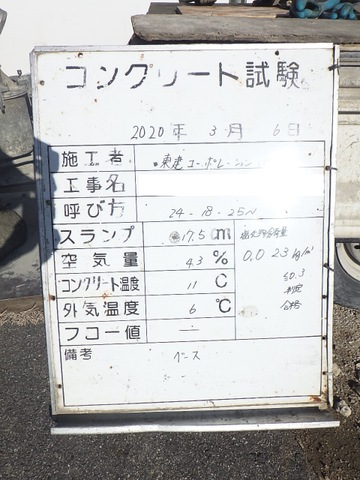 コンクリート試験
2020年 3月 6日
施工者 東建コーポレーション
工事名
呼び方 24-18-25N
スランプ 17.5cm 塩化物含有量
空気量 4.3% 0.023kg/m³
コンクリート温度 11℃ ≦0.3
外気温度 6℃ 判定
フロー値 — 合格
備考 ベース